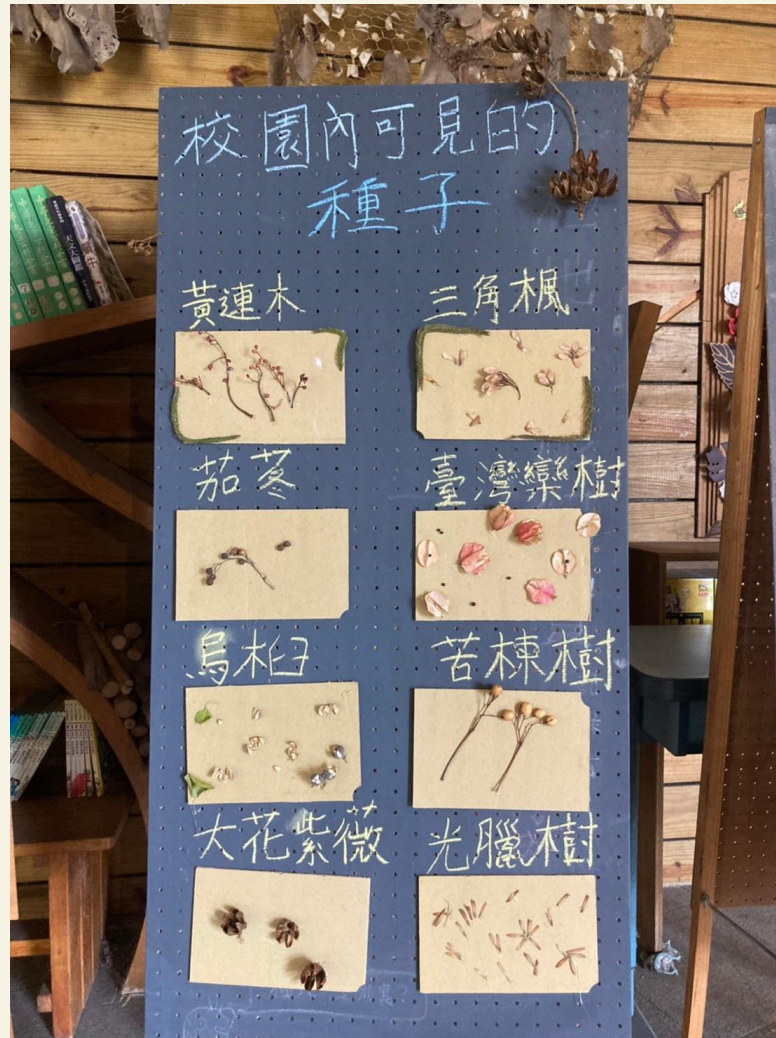 校園內可見的
種子
黃連木
三角楓
茄苳
臺灣欒樹
烏桕
苦楝樹
大花紫薇
光臘樹